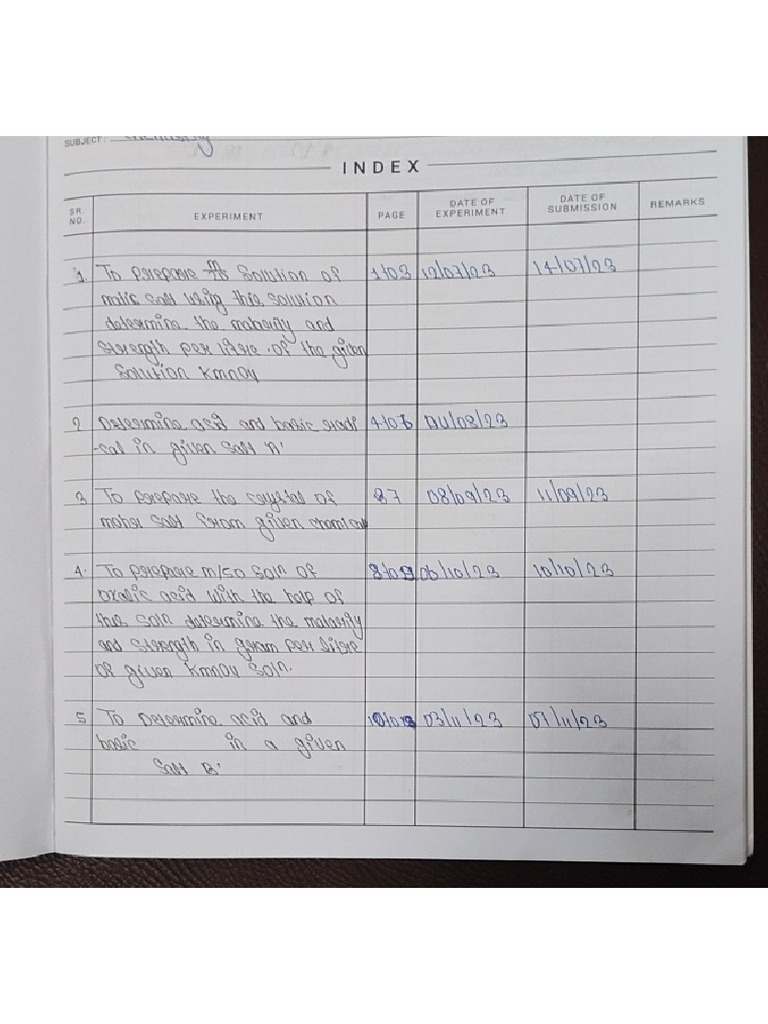 SUBJECT: Chemistry
INDEX
SR. NO. EXPERIMENT PAGE DATE OF EXPERIMENT DATE OF SUBMISSION REMARKS
1. To prepare Solution of 1 to 3 12/07/23 14/07/23
salt using this solution
determine the and
strength per litre of the given
Solution KmnO4
2 Determine acid and basic 4 to 6 04/08/23
-cal in given Salt 'A'
3 To prepare the crystal of 87 08/09/23 11/09/23
mohar salt from given chemical
4. To prepare m/50 Soln of 8 to 9 06/10/23 10/10/23
oxalic acid with the help of
this soln determine the
and strength in gram per litre
of given KmnO4 Soln.
5 To Determine acid and 03/11/23 07/11/23
basic in a given
Salt B'